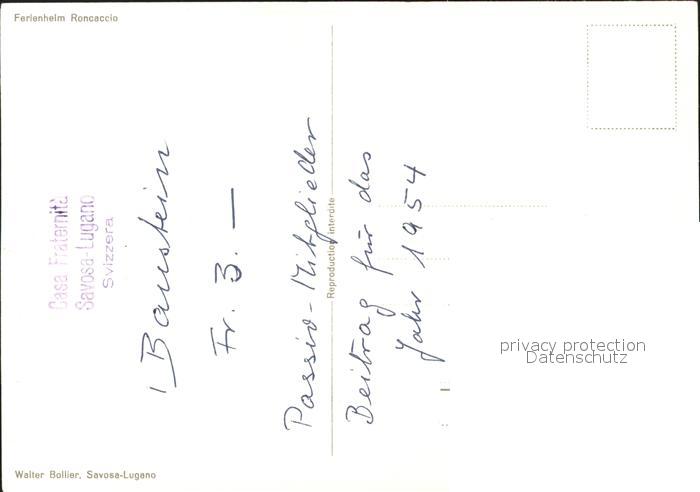 Ferienheim Roncaccio
Casa Fraternità
Savosa-Lugano
Svizzera
1 Baustein
Fr. 3. —
Passiv-Mitglieder
Beitrag für das
Jahr 1954
Reproduction interdite
privacy protection
Datenschutz
Walter Bollier, Savosa-Lugano